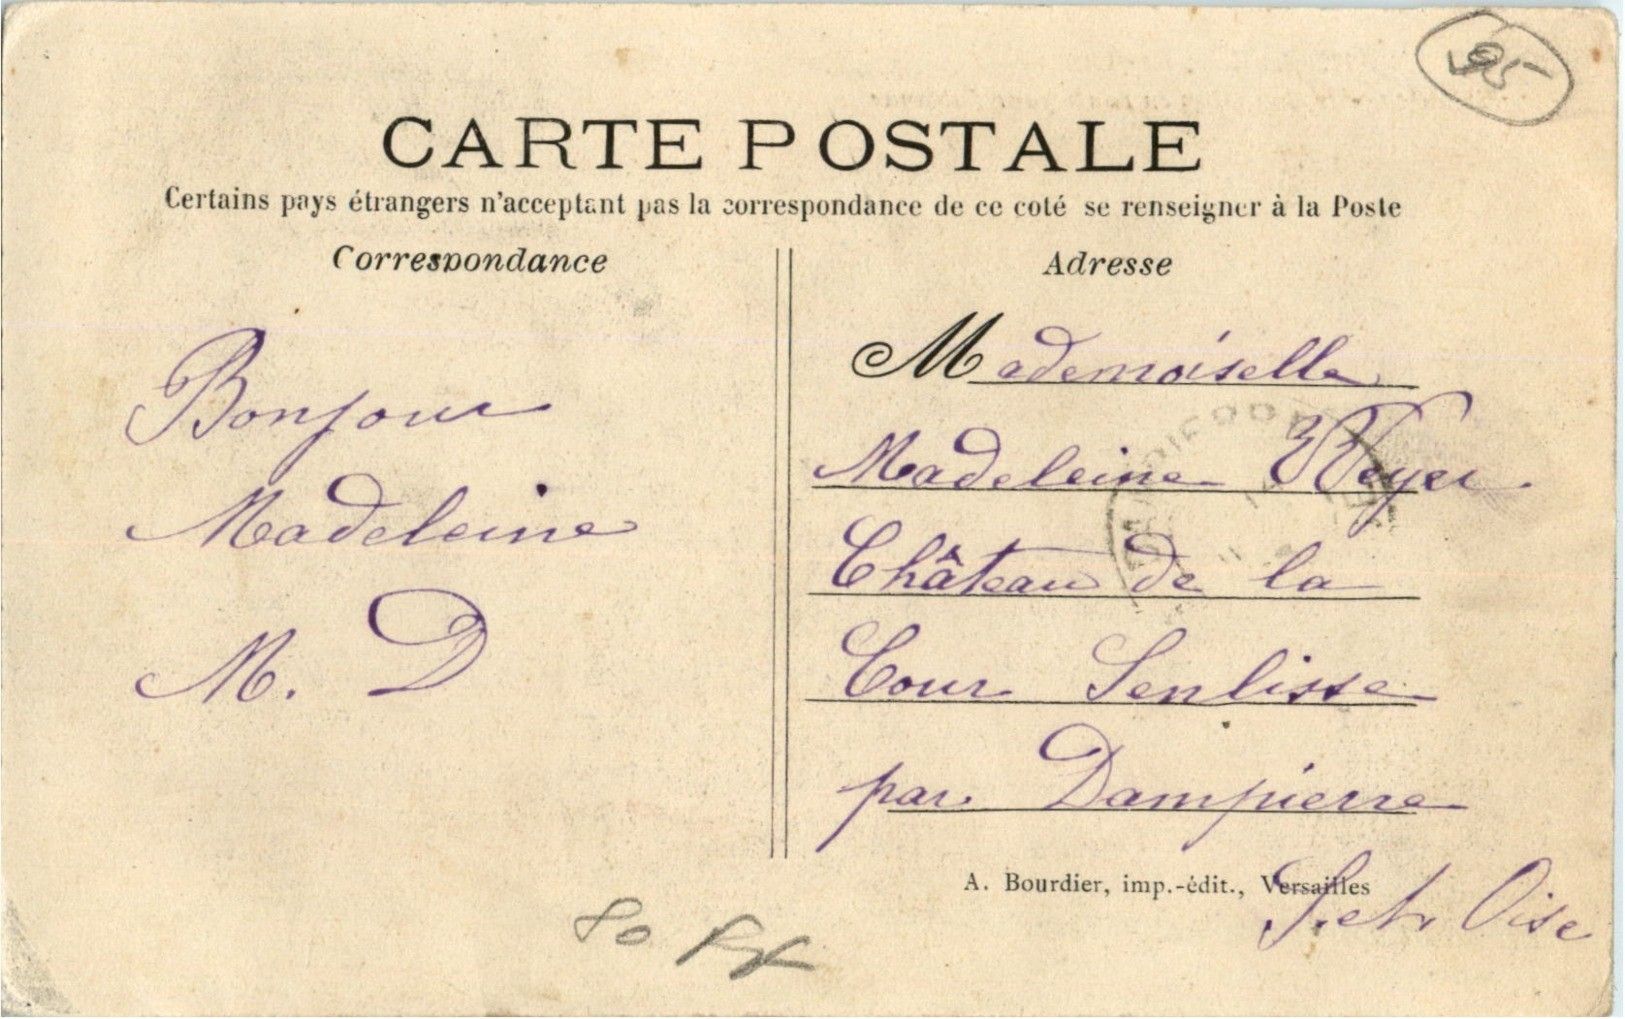 95
CARTE POSTALE
Certains pays étrangers n'acceptant pas la correspondance de ce coté se renseigner à la Poste
Correspondance
Adresse
Bonjour
Madeleine
M. D
Mademoiselle
Madeleine
Château de la
Cour Senlisse
par Dampierre
S. et Oise
A. Bourdier, imp.-édit., Versailles
80